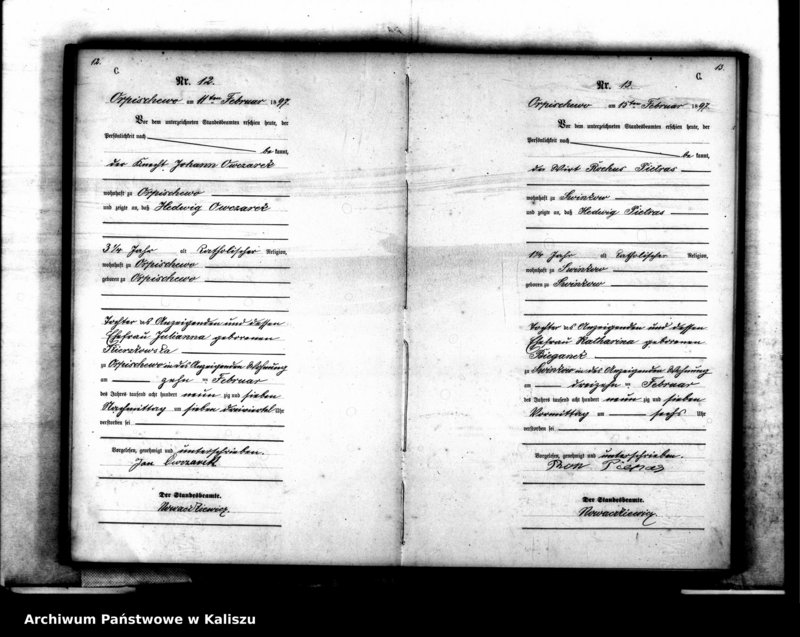 12.
C.
Nr. 12.
Orpischewo am 11ten Februar 1897.
Vor dem unterzeichneten Standesbeamten erschien heute, der
Persönlichkeit nach
bekannt,
der Knecht Johann Owczarek
wohnhaft zu Orpischewo
und zeigte an, daß Hedwig Owczarek
3 1/4 Jahr alt katholischer Religion,
wohnhaft zu Orpischewo
geboren zu Orpischewo
Tochter des Anzeigenden und dessen
Ehefrau Julianna geborenen
Kierzkowska
zu Orpischewo in des Anzeigenden Wohnung
am zehn ten Februar
des Jahres tausend acht hundert neun zig und sieben
Nachmittag um sieben dreiviertel Uhr
verstorben sei
Vorgelesen, genehmigt und unterschrieben.
Jan Owczarek
Der Standesbeamte.
Nowaczkiewicz.
13.
C.
Nr. 13.
Orpischewo am 15ten Februar 1897.
Vor dem unterzeichneten Standesbeamten erschien heute, der
Persönlichkeit nach
bekannt,
der Wirt Rochus Pietras
wohnhaft zu Swinkow
und zeigte an, daß Hedwig Pietras
Jahr alt katholischer Religion,
wohnhaft zu Swinkow
geboren zu Swinkow
Tochter des Anzeigenden und dessen
Ehefrau Katharina geborenen
Bieganek
zu Swinkow in des Anzeigenden Wohnung
am dreizehn ten Februar
des Jahres tausend acht hundert neun zig und sieben
Vormittag um sechs Uhr
verstorben sei
Vorgelesen, genehmigt und unterschrieben.
Pietras
Der Standesbeamte.
Nowaczkiewicz
Archiwum Państwowe w Kaliszu